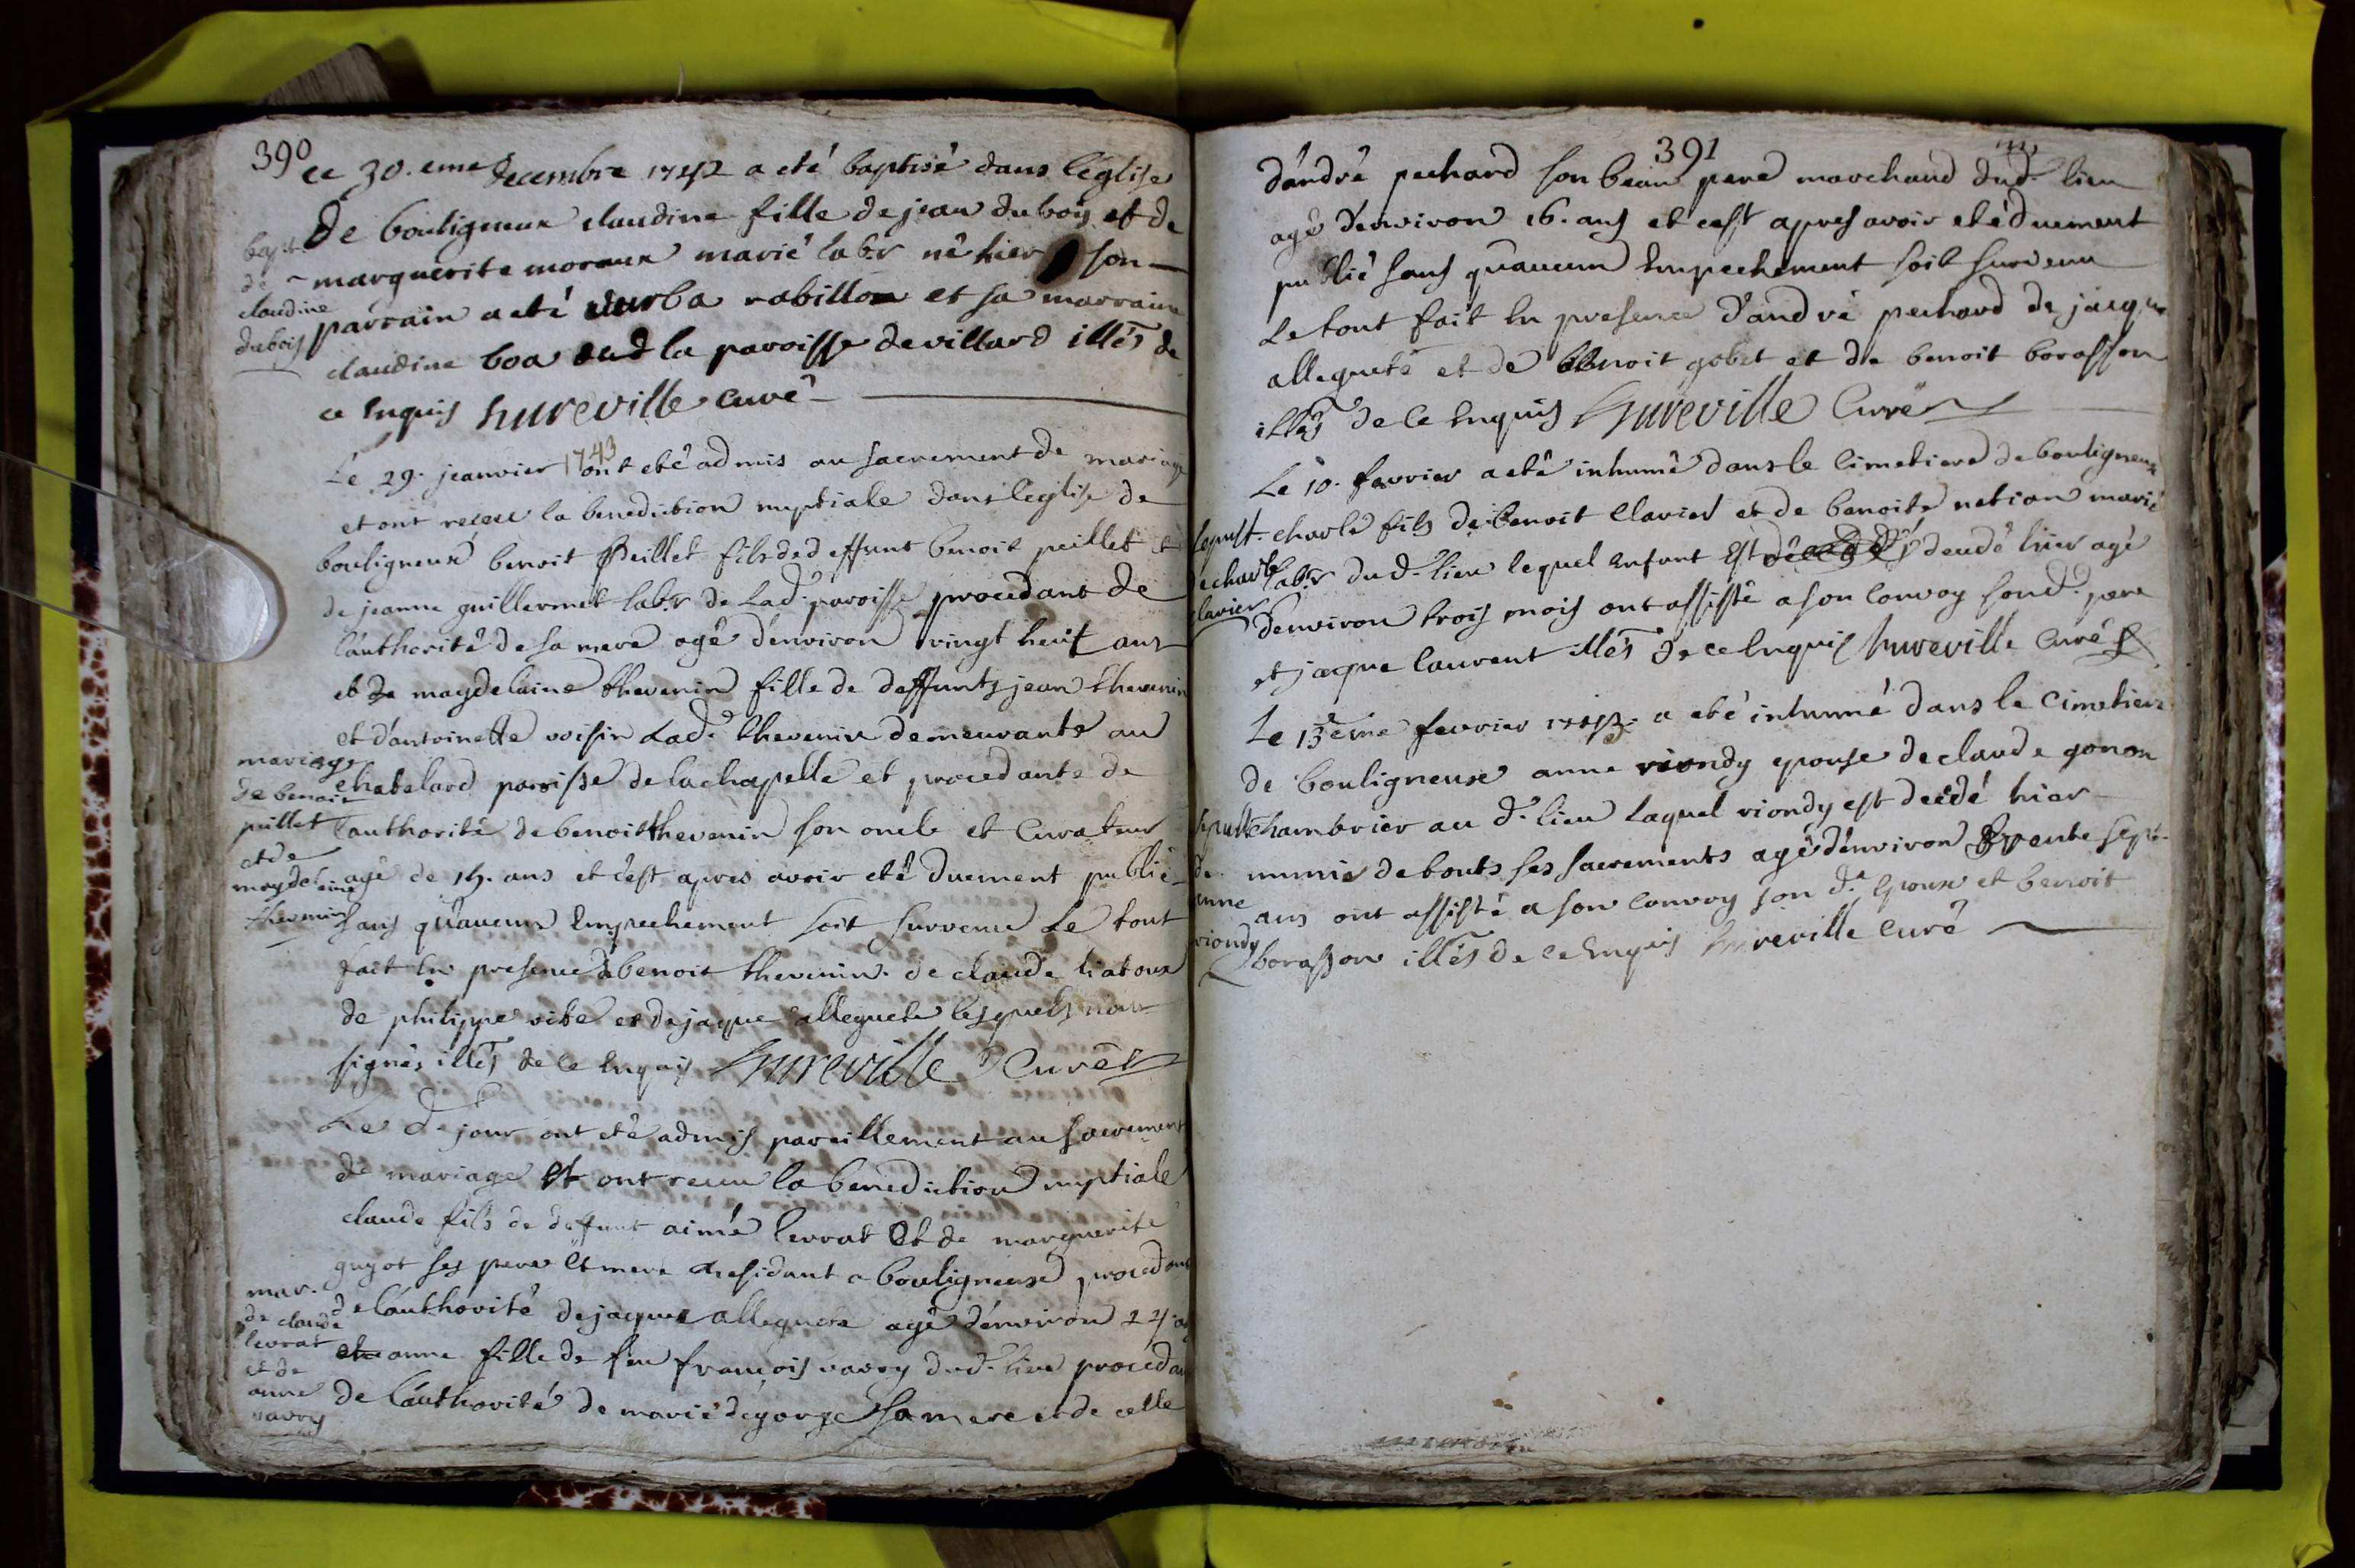 390
ce 30.eme decembre 1742 a eté baptisé dans l'église
de bouligneux claudine fille de jean dubois et de
marguerite moraux marié labr né hier son
parrain a eté rabillon et sa marraine
claudine boa la paroisse de villard illés de
ce Enquis hureville curé
bapt.
de
claudine
dubois
Le 29. jeanvier 1743 ont eté admis au sacrement de mariage
et ont reçeu la benediction nuptiale dans leglise de
bouligneux benoit peillet fils de deffunt benoit peillet et
de jeanne guillermet labr de lad. paroisse procedant de
l'authorité de sa mere agé d'environ vingt heuit ans
et de magdelaine thevenin fille de deffunts jean thevenin
et d'antoinette voisin Lad. thevenin demeurante au
chatelard paroisse de lachapelle et procedante de
l'authorité de benoit thevenin son oncle et curateur
agé de 19. ans et c'est apres avoir eté duement publié
sans qu'aucun Empechement soit survenu Le tout
fait En presence de benoit thevenin de claude liatoux
de philippe vibe et de jaque allegueté lesquels n'ont
signés illés de ce Enquis hureville Curé
mariage
de benoit
peillet
et de
magdeleine
thevenin
Le d. jour ont eté admis pareillement au sacrement
de mariage et ont receu la benediction nuptiale
claude fils de deffunt aimé levrat et de marguerite
guyot ses pere et mere residant a bouligneux procedant
de l'authorité de jaque allegueté agé d'environ 24. ans
et anne fille de feu françois vavry dud. lieu procedant
de l'authorité de marie degorge sa mere et de celle
mar.
de claude
levrat
et de
anne
vavry
391
d'andré pechard son beau pere marchand dud. lieu
agé d'environ 16. ans et c'est apres avoir eté duement
publié sans qu'aucun Empechement soit survenu
Le tout fait En presence d'andré pechard de jacque
allegueté et de benoit gobet et de benoit borasson
illés de ce Enquis hureville Curé
Le 10. fevrier a eté inhumé dans le cimetiere de bouligneux
charle fils de benoit Clavier et de benoite netion marié
labr dud. lieu lequel Enfant est decedé hier agé
d'environ trois mois ont assisté a son convoy sond. pere
et jaque laurent illés de ce Enquis hureville Curé
sepult.
de charle
clavier
Le 13eme fevrier 1743. a eté inhumé dans le cimetiere
de bouligneux anne riondy epouse de claude gonon
chambrier au d. lieu laquel riondy est decedé hier
munie de touts ses sacrements agé d'environ trente sept
ans ont assisté a son convoy son d. Epoux et benoit
borasson illés de ce Enquis hureville Curé
sepult.
de
anne
riondy